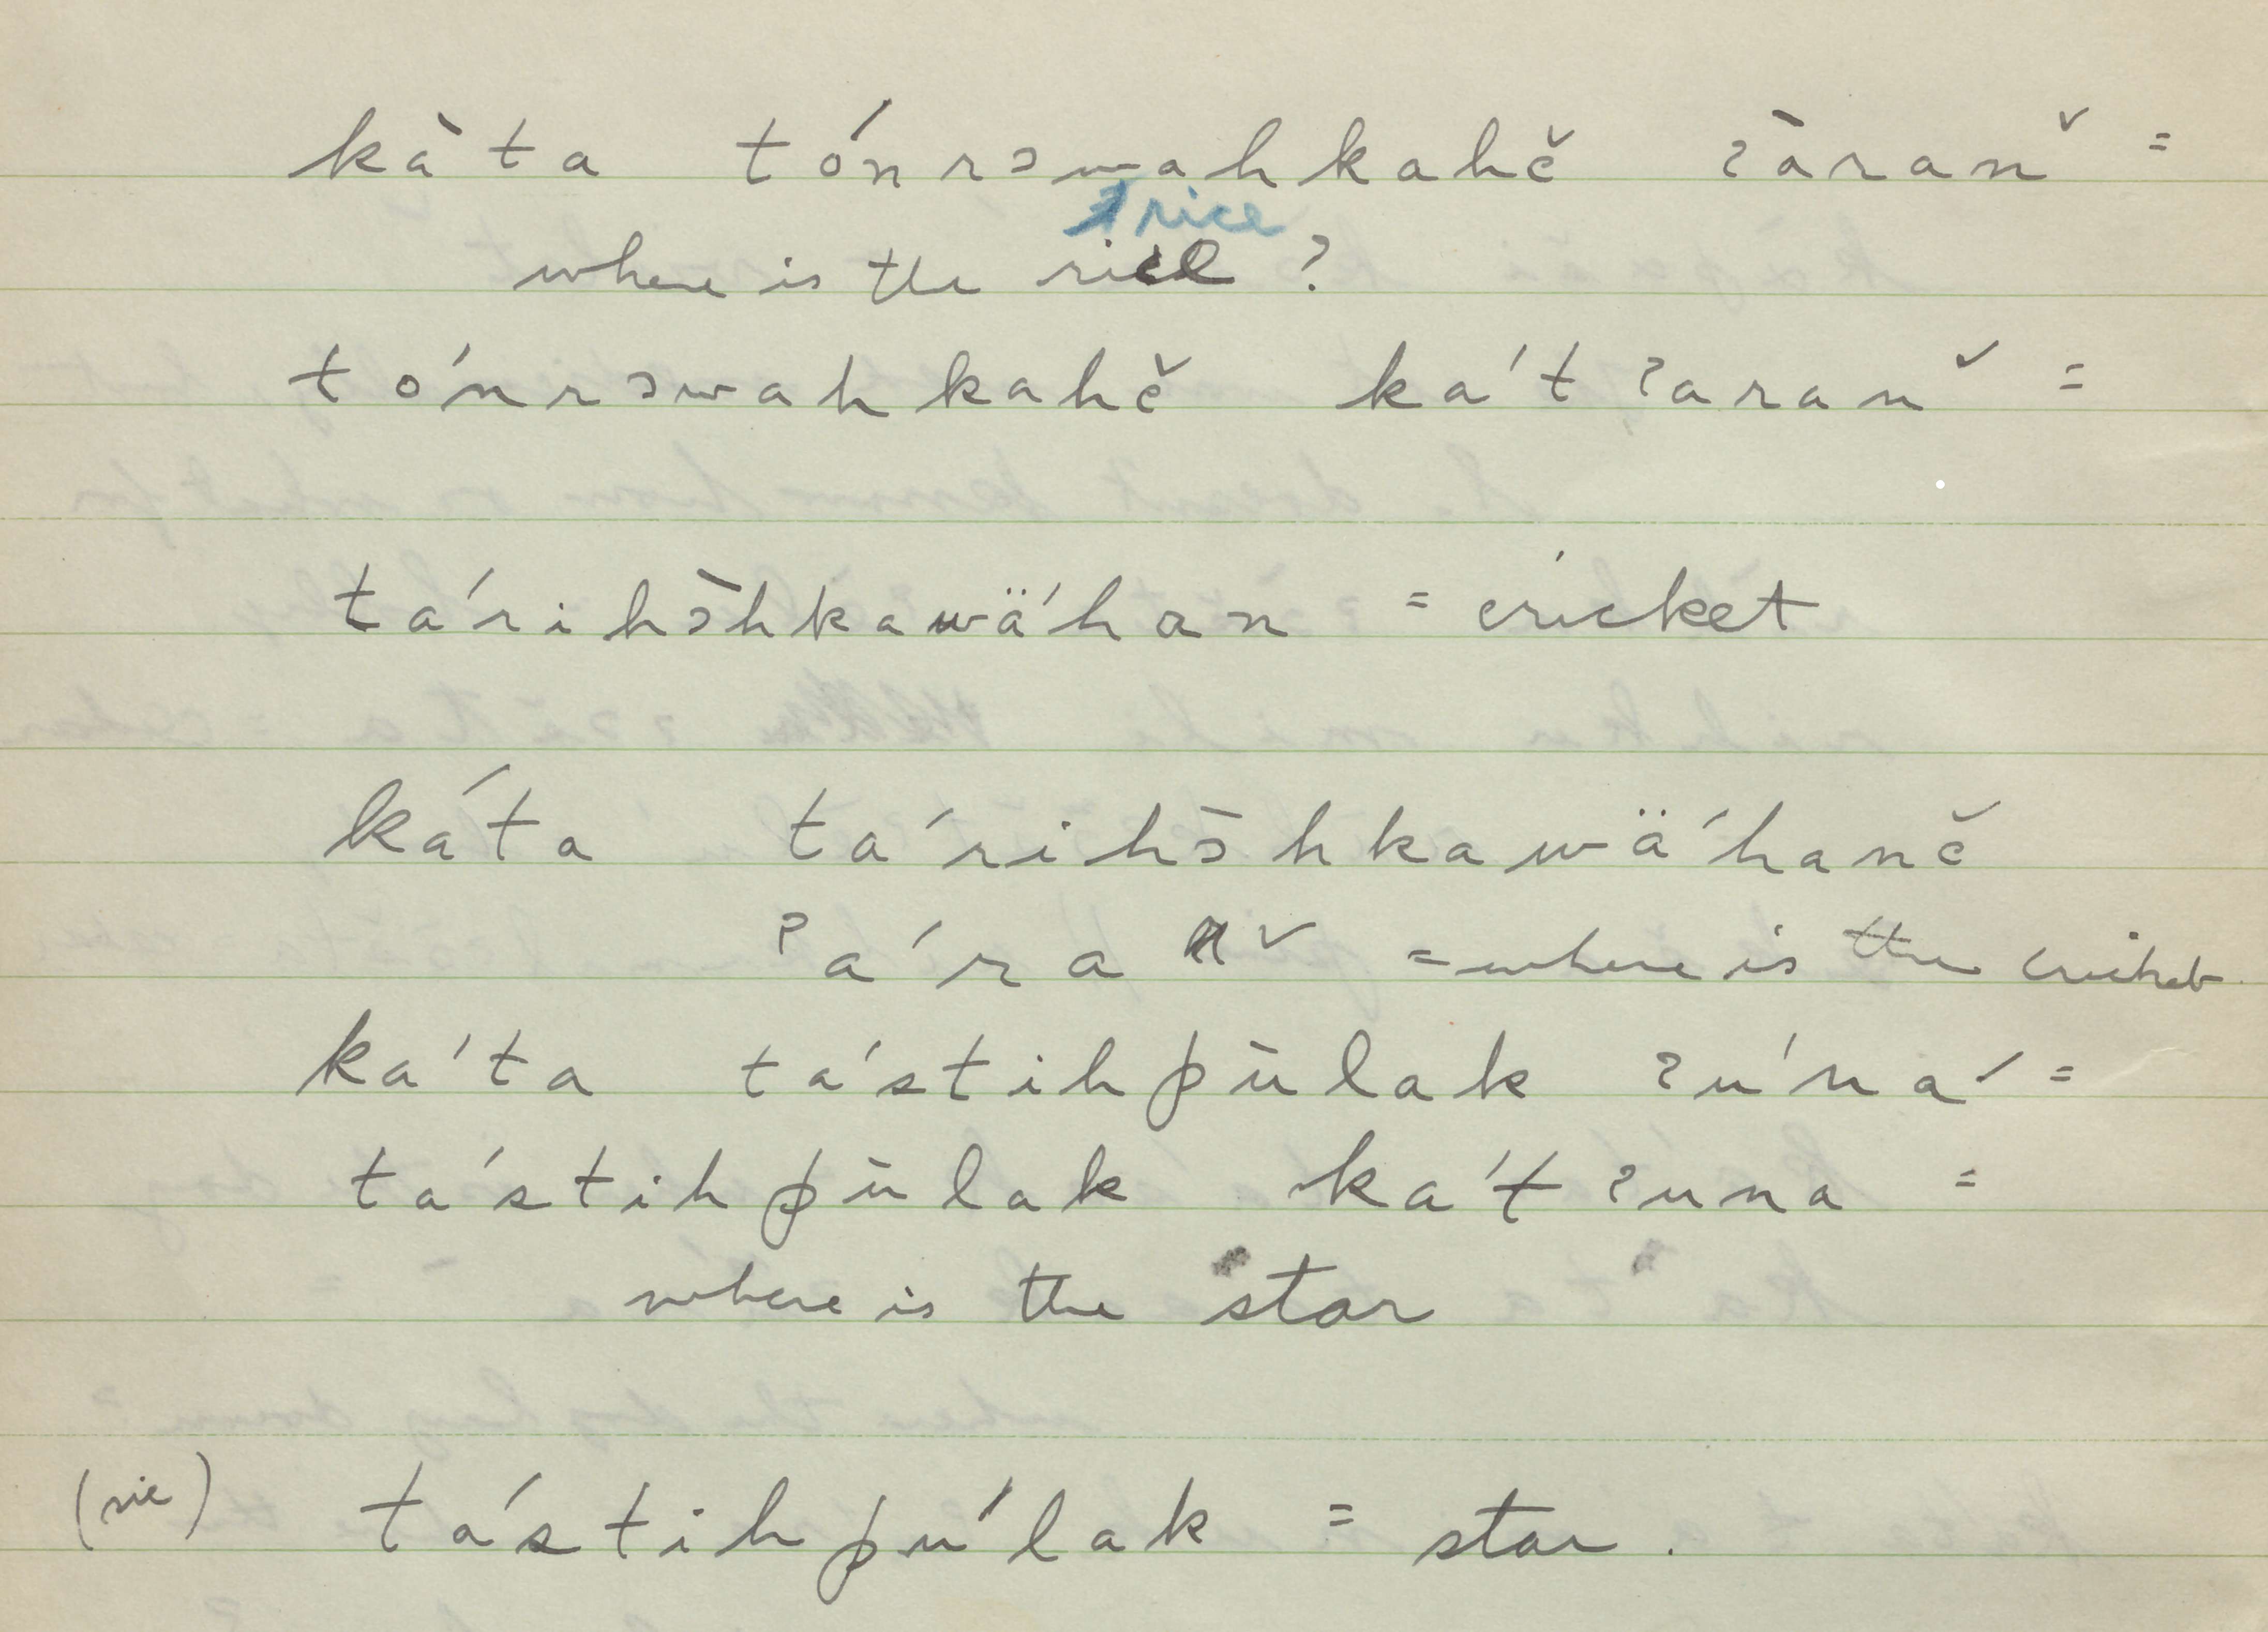 kàta tónrɔwahkahč ʔāranˇ =
rice
where is the rice ?
tónrɔwahkahč ka't ʔaranˇ =
tárihɔ̄hkawä'han = cricket
káta ta'rihɔ̄hkawä'hanč
ʔa'ranˇ = where is the cricket
ka'ta ta'stihpūlak ʔu'na' =
ta'stihpūlak ka't ʔuna =
where is the star
(sic) tá'stihpu'lak = star.